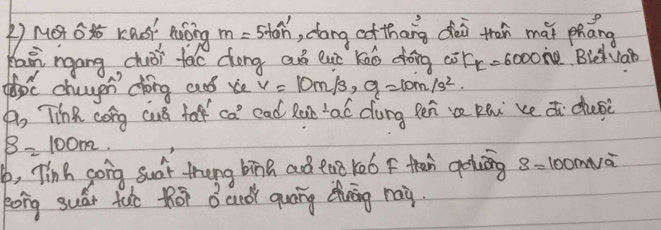 2) Một ô tô khối lượng m = 5 tấn, đang cđ thẳng đều trên mặt phẳng
nằm ngang dưới tác dụng của lực kéo động cơ Fk = 6000N. Biết vận
tốc chuyển động của xe v = 10m/s, g = 10m/s².
a, Tính công của tất cả các lực tác dụng lên xe khi xe đi được
S = 100m.
b, Tính công suất trung bình của lực kéo F trên qđường S = 100m và
công suất tức thời ở cuối quãng đường này.